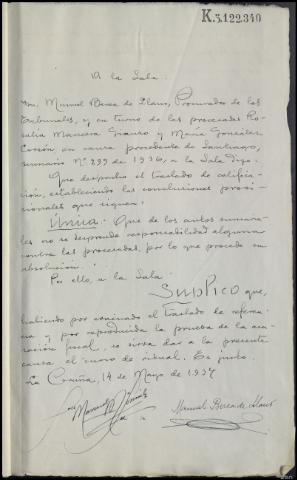 K.5.122.340
A la Sala.
Don Manuel Berea de Llano, Procurador de los
Tribunales, y en turno de las procesadas Ro-
salia Maneira Granro y María González
en causa procedente de Santiago,
sumario Nº 299 de 1936, a la Sala digo:
Que despacho el traslado de califica-
ción, estableciendo las conclusiones provi-
sionales que siguen:
Única: Que de los autos sumaria-
les no se desprende responsabilidad alguna
contra las procesadas, por lo que procede su
absolución.
Por ello, a la Sala
SUPLICO que,
habiendo por evacuado el traslado de referen-
cia y por reproducida la prueba de la acu-
sación fiscal, se sirva dar a la presente
causa el curso de ritual. Es justo.
La Coruña, 14 de Mayo de 1937
Manuel Berea de Llano